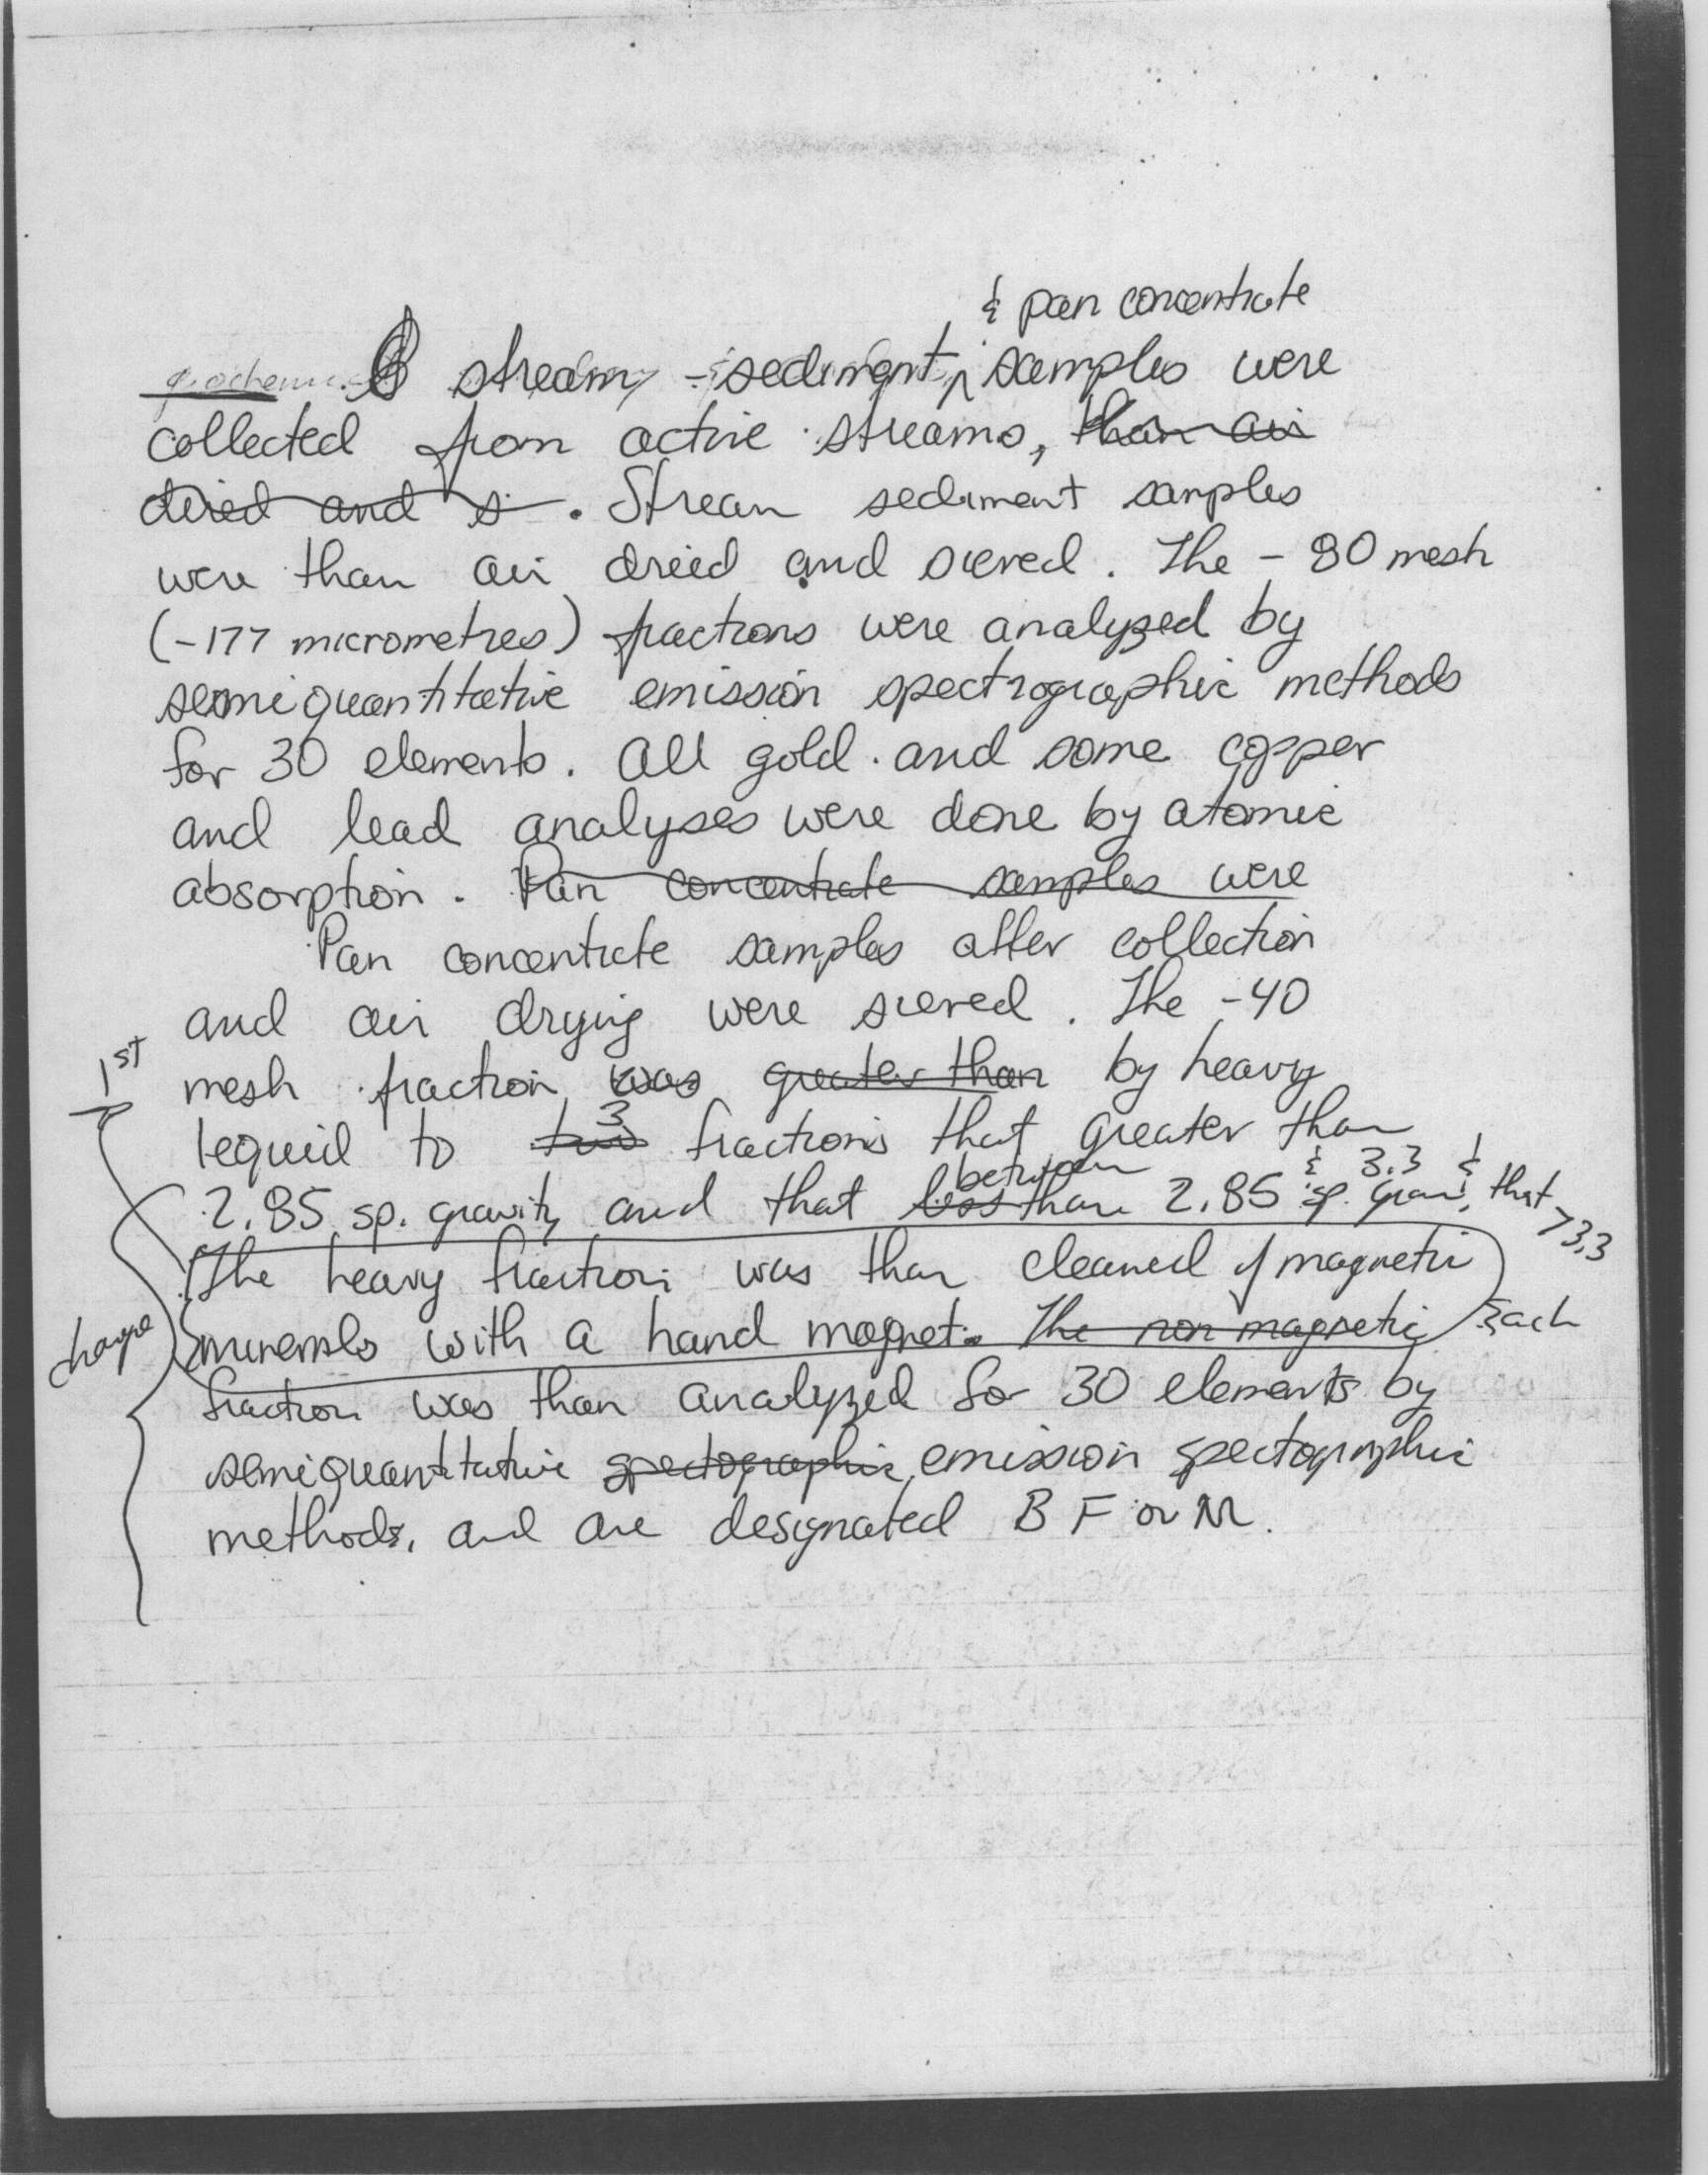 & pan concentrate
stream-sediment, samples were
collected from active streams, than air
dried and s. Stream sediment samples
were than air dried and sieved. The -80 mesh
(-177 micrometres) fractions were analyzed by
semiquantitative emission spectrographic methods
for 30 elements. All gold and some copper
and lead analyses were done by atomic
absorption. Pan concentrate samples were
Pan concentrate samples after collection
and air drying were sieved. The -40
1st
mesh fraction was greater than by heavy
3
lequid to two fractions that greater than
between & 3.3 &
2.85 sp. gravity and that less than 2.85 sp. grav, that
>3.3
The heavy fraction was than cleaned of magnetic
change
minerals with a hand magnet. The non magnetic Each
fraction was than analyzed for 30 elements by
semiquantitative spectographic emission spectographic
methods, and are designated B F or M.